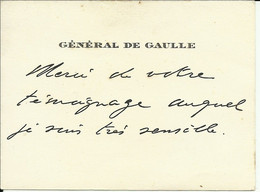 GÉNÉRAL DE GAULLE
Merci de votre
témoignage auquel
je suis très sensible.